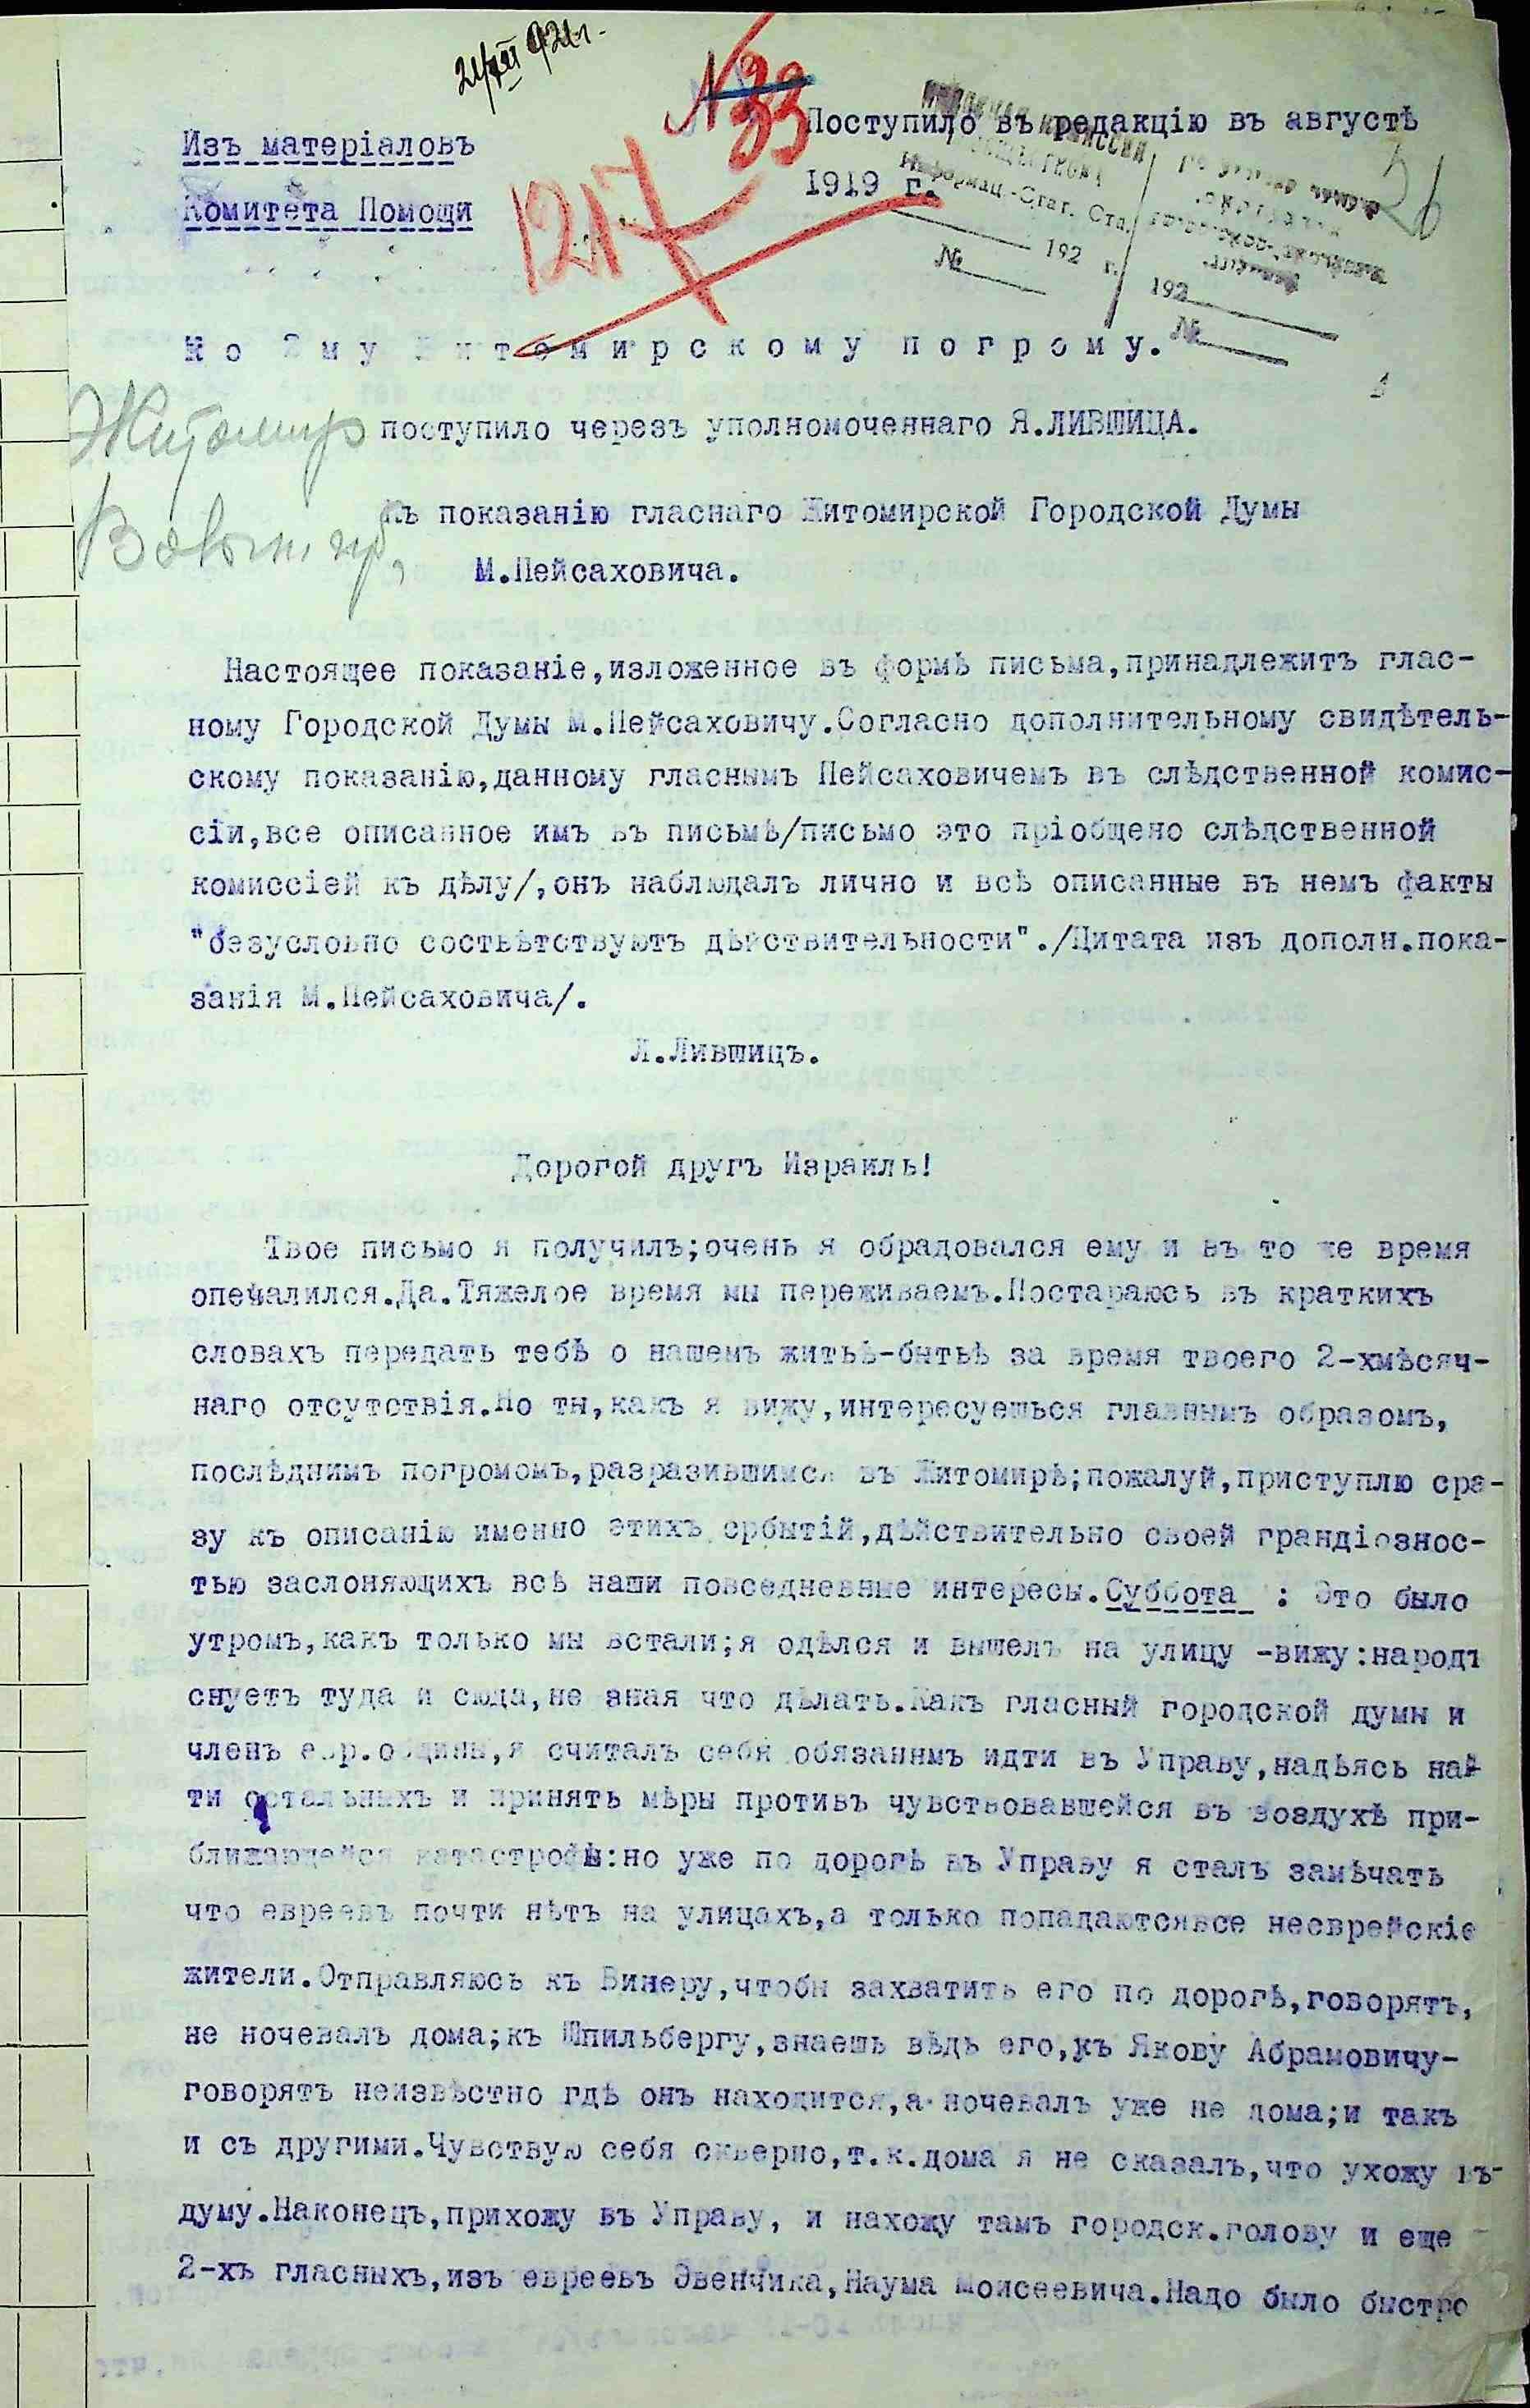 21/XII 921 г.
№ 33
Поступило въ редакцію въ августѣ
1919 г.
Изъ матеріаловъ
Комитета Помощи
1217
26
Информац.-Стат.
192 г.
№
192
№
Ко 2му Житомирскому погрому.
Житомир
поступило черезъ уполномоченнаго Я.ЛИВШИЦА.
Волын губ,
Къ показанію гласнаго Житомирской Городской Думы
М.Пейсаховича.
Настоящее показаніе,изложенное въ формѣ письма,принадлежитъ глас-
ному Городской Думы М.Пейсаховичу.Согласно дополнительному свидѣтель-
скому показанію,данному гласнымъ Пейсаховичемъ въ слѣдственной комис-
сіи,все описанное имъ въ письмѣ/письмо это пріобщено слѣдственной
комиссіей къ дѣлу/,онъ наблюдалъ лично и всѣ описанные въ немъ факты
"безусловно соствѣтствуютъ дѣйствительности"./Цитата изъ дополн.пока-
занія М.Пейсаховича/.
Л.Лившицъ.
Дорогой другъ Израиль!
Твое письмо я получилъ;очень я обрадовался ему и въ то же время
опечалился.Да.Тяжелое время мы переживаемъ.Постараюсь въ краткихъ
словахъ передать тебѣ о нашемъ житьѣ-бытьѣ за время твоего 2-хмѣсяч-
наго отсутствія.Но ты,какъ я вижу,интересуешься главнымъ образомъ,
послѣднимъ погромомъ,разразившимся въ Житомирѣ;пожалуй,приступлю сра-
зу къ описанію именно этихъ србытій,дѣйствительно своей грандіознос-
тью заслоняющихъ всѣ наши повседневные интересы.Суббота : Это было
утромъ,какъ только мы встали;я одѣлся и вышелъ на улицу -вижу:народъ
снуетъ туда и сюда,не зная что дѣлать.Какъ гласный городской думы и
членъ евр.общины,я считалъ себя обязаннымъ идти въ Управу,надѣясь най-
ти остальныхъ и принять мѣры противъ чувствовавшейся въ воздухѣ при-
ближающейся катастрофы:но уже по дорогѣ въ Управу я сталъ замѣчать
что евреевъ почти нѣтъ на улицахъ,а только попадаютсявсе нееврейскіе
жители.Отправляюсь къ Винеру,чтобы захватить его по дорогѣ,говорятъ,
не ночевалъ дома;къ Шпильбергу,знаешь вѣдь его,къ Якову Абрамовичу-
говорятъ неизвѣстно гдѣ онъ находится,а ночевалъ уже не дома;и такъ
и съ другими.Чувствую себя скверно,т.к.дома я не сказалъ,что ухожу въ
думу.Наконецъ,прихожу въ Управу, и нахожу тамъ городск.голову и еще
2-хъ гласныхъ,изъ евреевъ Эвенчика,Наума Моисеевича.Надо было быстро